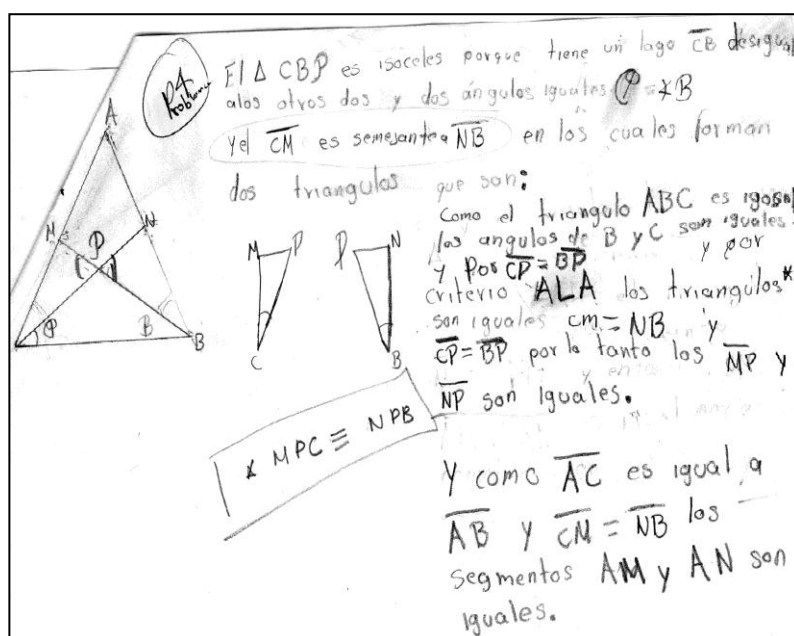 Problema P4
El Δ CBP es isoceles porque tiene un lago CB desigual
alos otros dos y dos ángulos iguales φ = ∡B
yel CM es semejante a NB en los cuales forman
dos triangulos que son:
A
M
P
N
φ
B
B
M
P
C
P
N
B
Como el triangulo ABC es
los angulos de B y C son iguales
y por CP = BP y por
criterio ALA los triangulos*
son iguales cm = NB y
CP = BP por lo tanto los MP y
NP son iguales.
* MPC ≡ NPB
Y como AC es igual a
AB y CM = NB los
segmentos AM y AN son
iguales.